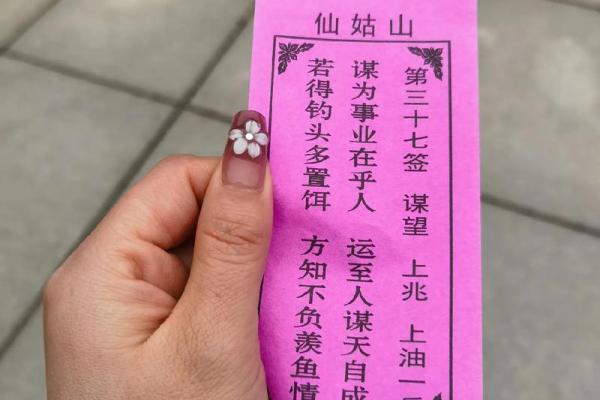 仙姑山
第三十七签 谋望 上兆 上油一
谋为事业在乎人 运至人谋天自成
若得钓头多置饵 方知不负羡鱼情